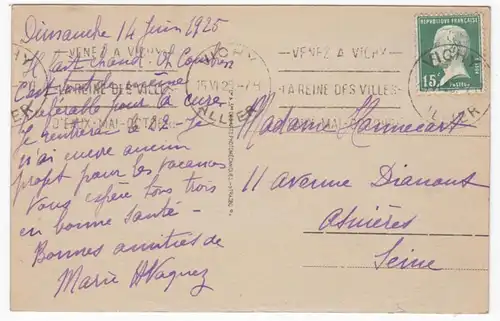 Dimanche 14 Juin 1925
Il fait chaud. Et Courbon
C'est
préférable pour la cure.
Je rentrerai le 22 - Je
n'ai encore aucun
projet pour les vacances
Vous espère tous trois
en bonne santé -
Bonnes amitiés de
Marie
VENEZ A VICHY
LA REINE DES VILLES
D'EAUX-MAI-OCTOBRE
VICHY
ALLIER
VENEZ A VICHY
LA REINE DES VILLES
VICHY
ALLIER
REPUBLIQUE FRANÇAISE
15c
POSTES
Madame Hannecart
11 avenue Dianoux
Asnières
Seine